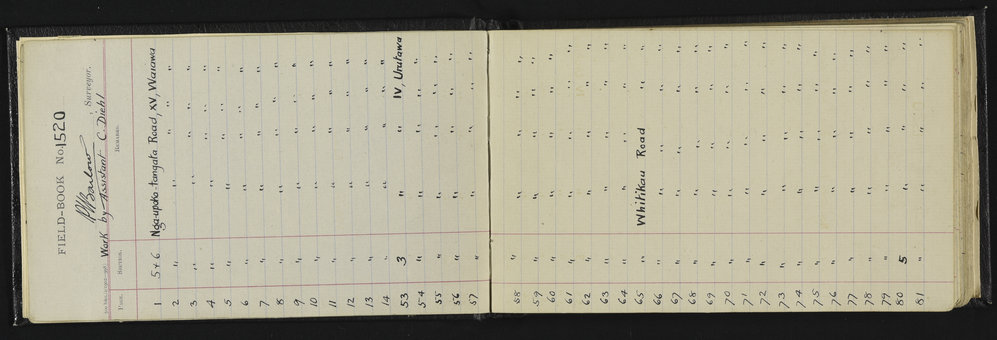 FIELD-BOOK No. 1520
P. Barlow, Surveyor.
Work by Assistant C. Diehl
Page. Section. Remarks.
1 5+6 Nga-upoko-tangata Road, XV, Waiawa
2 " " " " "
3 " " " " "
4 " " " " "
5 " " " " "
6 " " " " "
7 " " " " "
8 " " " " "
9 " " " " "
10 " " " " "
11 " " " " "
12 " " " " "
13 " " " " "
14 " " " " "
53 3 " " IV, Urutawa
54 " " " " "
55 " " " " "
56 " " " " "
57 " " " " "
58 " " " " "
59 " " " " "
60 " " " " "
61 " " " " "
62 " " " " "
63 " " " " "
64 " " " " "
65 " Whitikau Road " "
66 " " " " "
67 " " " " "
68 " " " " "
69 " " " " "
70 " " " " "
71 " " " " "
72 " " " " "
73 " " " " "
74 " " " " "
75 " " " " "
76 " " " " "
77 " " " " "
78 " " " " "
79 " " " " "
80 5 " " " "
81 " " " " "